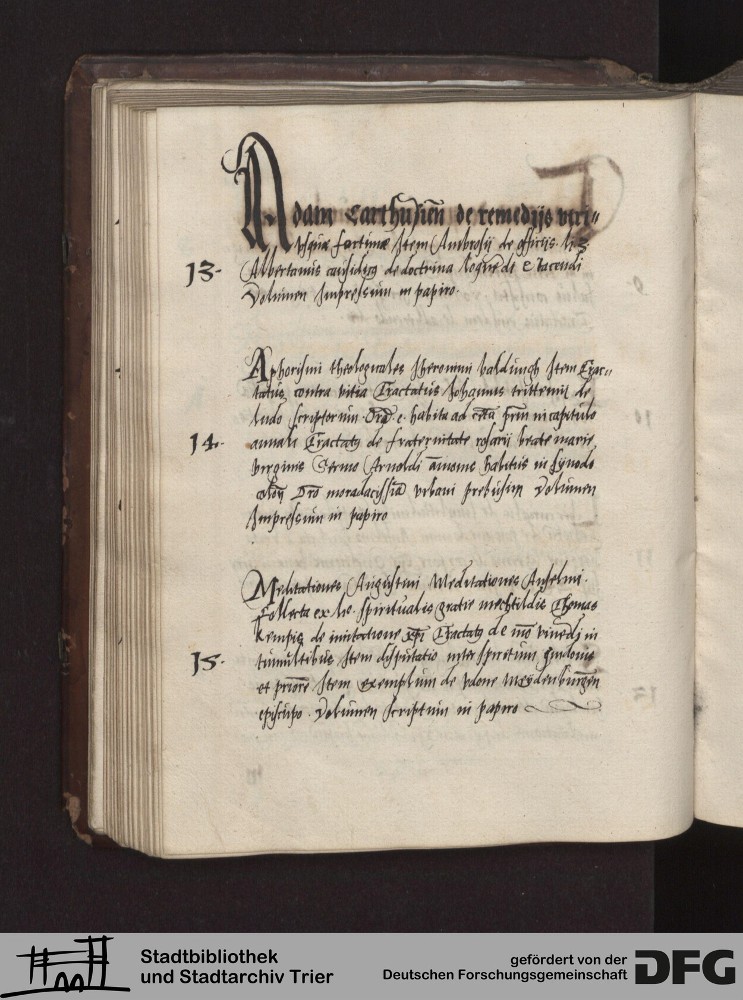 Adam Carthusien̄ de remedijs utri=
usque fortune Item Ambrosij de officijs
13. Albertanus causidicus de doctrina loquendi et tacendi
Volumen Impressum in papiro.
Aphorismi theologicales Jheronimi baldungh Item Trac=
tatus contra vitia Tractatus Johannis trittemij de
ludo scriptorum habita ad in capitulo
14. annali Tractatus de fraternitate rosarij beate marie
virginis Sermo Arnoldi habitus in synodo
urbani Volumen
Impressum in papiro
Meditationes Augustini Meditationes Anselmi.
Collecta ex spiritualis gratie mechtildis Thomas
kempis de imitatione xp̄i Tractatus de in
15. tumultibus Item disputatio inter spiritum gwidonis
et priorem Item exemplum de vdone meydenburgen̄
episcopo. Volumen scriptum in papiro
Stadtbibliothek
und Stadtarchiv Trier
gefördert von der
Deutschen Forschungsgemeinschaft
DFG